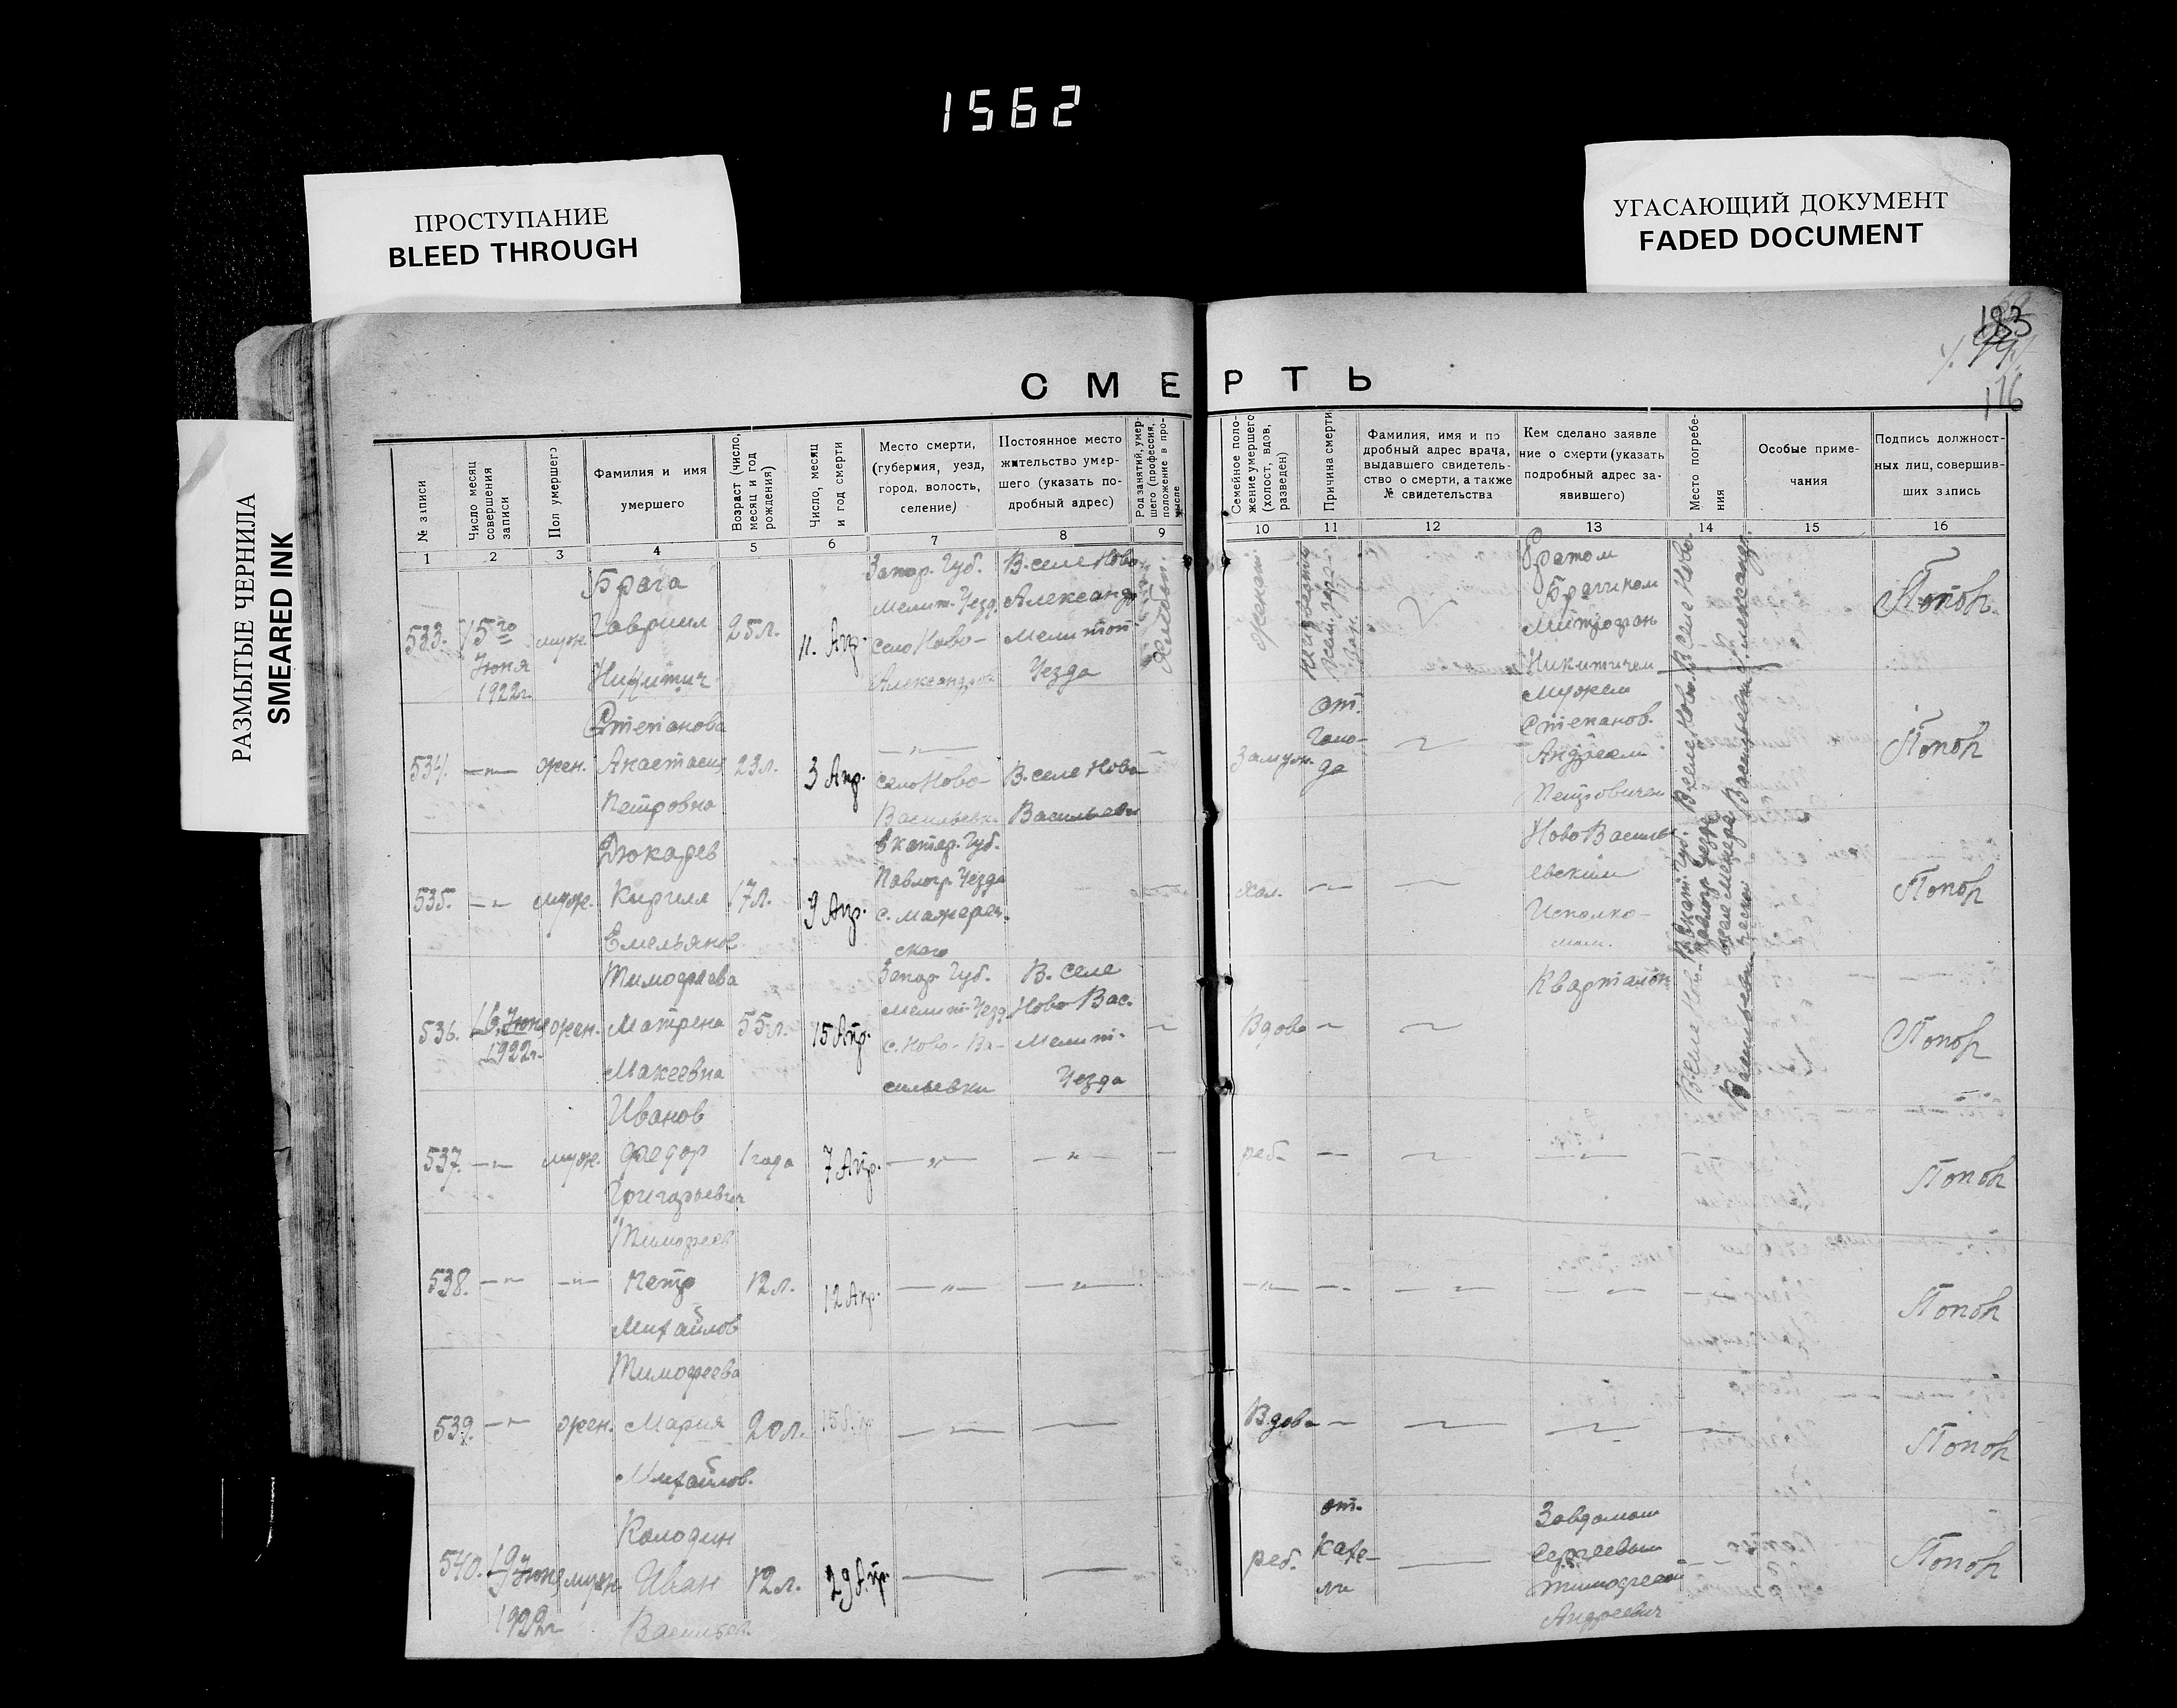 1562
ПРОСТУПАНИЕ
BLEED THROUGH
УГАСАЮЩИЙ ДОКУМЕНТ
FADED DOCUMENT
РАЗМЫТЫЕ ЧЕРНИЛА
SMEARED INK
183
116
СМЕРТЬ
№ записи
Число месяц
совершения
записи
Пол умершего
Фамилия и имя
умершего
Возраст (число,
месяц и год
рождения)
Число, месяц
и год смерти
Место смерти,
(губерния, уезд,
город, волость,
селение)
Постоянное место
жительство умер-
шего (указать по-
дробный адрес)
Род занятий, умер-
шего (профессия,
положение в про-
мысле
Семейное поло-
жение умершего
(холост, вдов,
разведен)
Причина смерти
Фамилия, имя и по
дробный адрес врача,
выдавшего свидетель-
ство о смерти, а также
№ свидетельства
Кем сделано заявле
ние о смерти (указать
подробный адрес за-
явившего)
Место погребе-
ния
Особые приме-
чания
Подпись должност-
ных лиц, совершив-
ших запись
1 2 3 4 5 6 7 8 9 10 11 12 13 14 15 16
533.
15го
Июня
1922г.
муж.
Брага
Гавриил
Никитич
25л.
11. Апр.
Запор. Губ.
Мелит. Уезд.
село Ново-
Александров
В. селе Ново
Александр
Мелитоп
Уезда
Хлебоп.
женат.
Братом
Брагиком
Митрофан
Никитичем
В селе Ново
Александр.
Попов
534.
—"—
жен.
Степанова
Анастасия
Петровна
23л.
3 Апр.
—"—
село Ново-
Васильевк.
В. селе Ново
Васильевк
Замуж.
от.
Голо-
да
Мужем
Степанов.
Андреем
Петровичем
В селе Ново
Васильевка
Попов
535.
—"—
муж.
Дюкарев
Кирилл
Емельянов
17л.
9 Апр.
Екатер. Губ.
Павлогр. Уезда
с. Мажерен-
ского
хол.
Ново Василь
евским
Исполко-
мом.
Екат. Губ.
Павлогр. Уезда
Попов
536.
16. Июня
1922г.
жен.
Тимофеева
Матрена
Макеевна
55л.
15 Апр.
Запор. Губ.
Мелит. Уезд.
с. Ново-Ва-
сильевки
В. селе
Ново Вас.
Мелит-
Уезда
Вдова
Квартален
В селе Нов.
Васильевк
Попов
537.
—"—
муж.
Иванов
Федор
Григорьевич
1 года
7 Апр.
—"—
—"—
реб-
Попов
538.
—"—
—"—
Тимофеев
Петр
Михайлов
12л.
12 Апр.
—"—
—"—
—"—
Попов
539.
—"—
жен.
Тимофеева
Мария
Михайлов.
20л.
15 Апр
Вдова
Попов
540.
19 Июня
1922г
муж.
Колодин
Иван
Васильев.
12л.
29 Апр.
реб.
от.
Завдомом
Сергеевым
Тимофеем
Андреевич
Попов